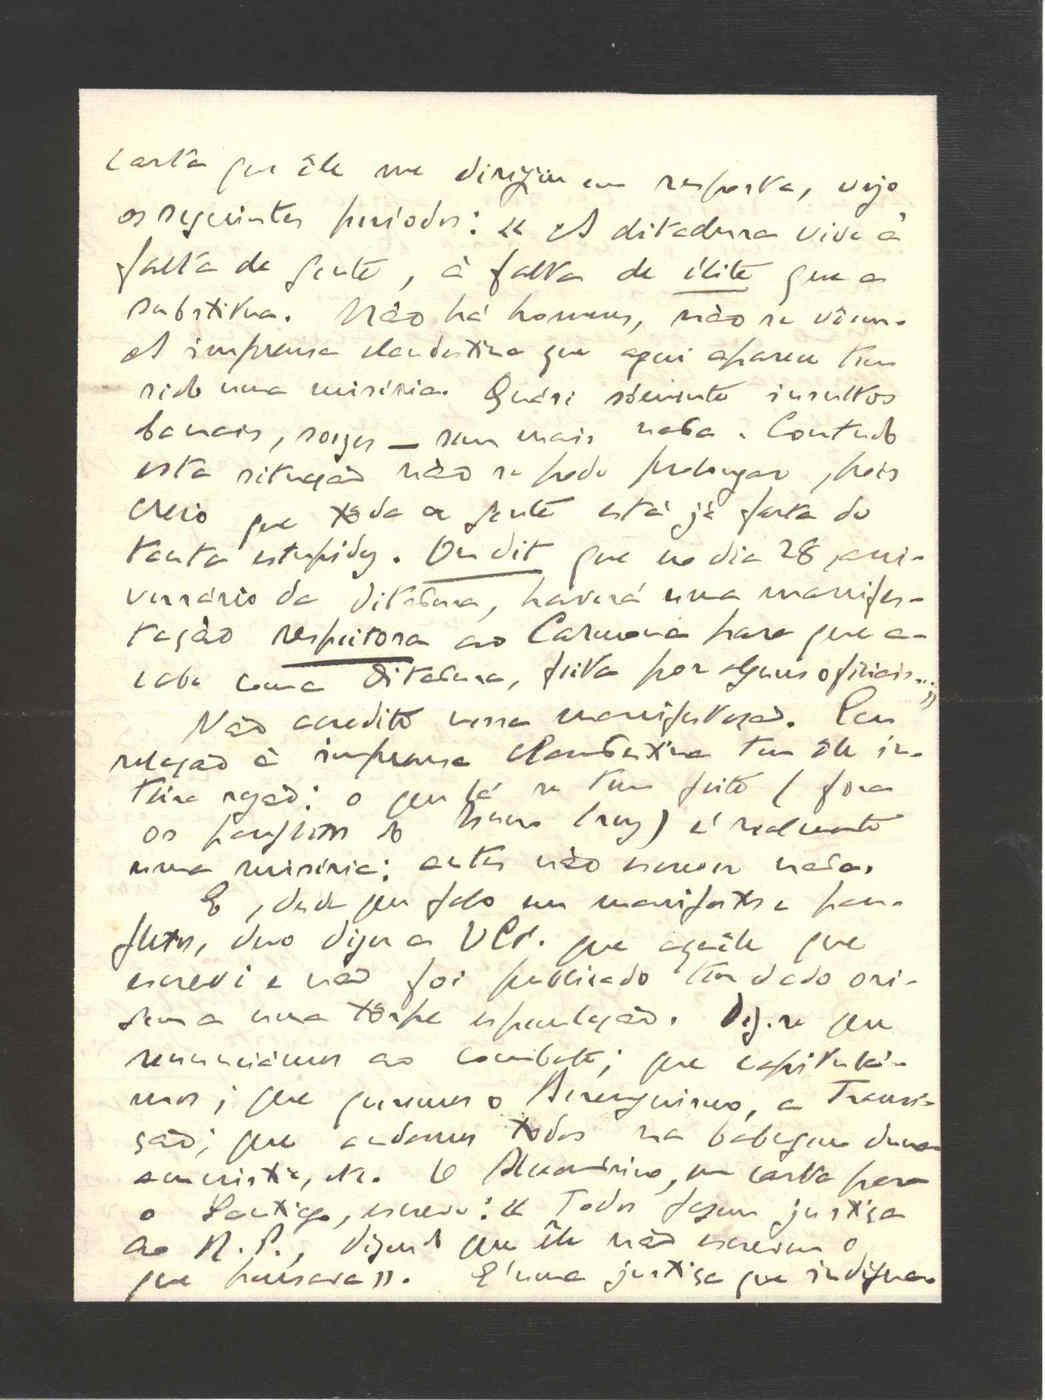 carta que êle me dirigiu em resposta, vejo
os seguintes períodos: « A ditadura vive à
falta de gente, à falta de élite que a
substitua. Não há homens, não se vêem.
A imprensa clandestina que aqui aparece tem
sido uma miséria. Quási sòmente insultos
banais, soezes — sem mais nada. Contudo
esta situação não se pode prolongar, pois
creio que tôda a gente está já farta de
tanta estupidez. On dit que no dia 28, ani-
versário da ditadura, haverá uma manifes-
tação respeitosa ao Carmona para que a-
cabe com a Ditadura, feita por alguns oficiais...»
Não acredito nessa manifestação. Em
relação à imprensa clandestina tem êle in-
teira razão: o que lá se tem feito (fora
os panfletos do ) é realmente
uma miséria; antes não escrever nada.
E, desde que falo em manifestos e pan-
fletos, devo dizer a V. que aquêle que
escrevi e não foi publicado tem dado ori-
gem a uma tôrpe especulação. Diz-se que
renunciámos ao combate; que capitulá-
mos; que queremos o Berenguismo, a Transi-
ção; que andamos todos na babugem duma
amnistia, etc. O Alexandrino, em carta para
o , escreve: « Todos fazem justiça
ao R. P., dizendo que êle não escreveu o
que pensava». E' uma justiça que indigna.